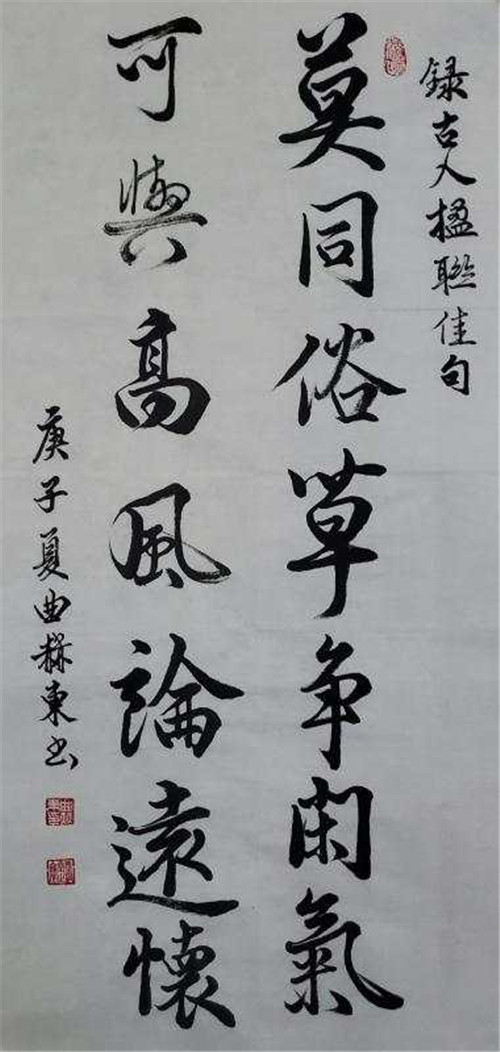 録古人楹聯佳句
莫同俗草争闲氣
可與高風論遠懷
庚子夏曲赫東书